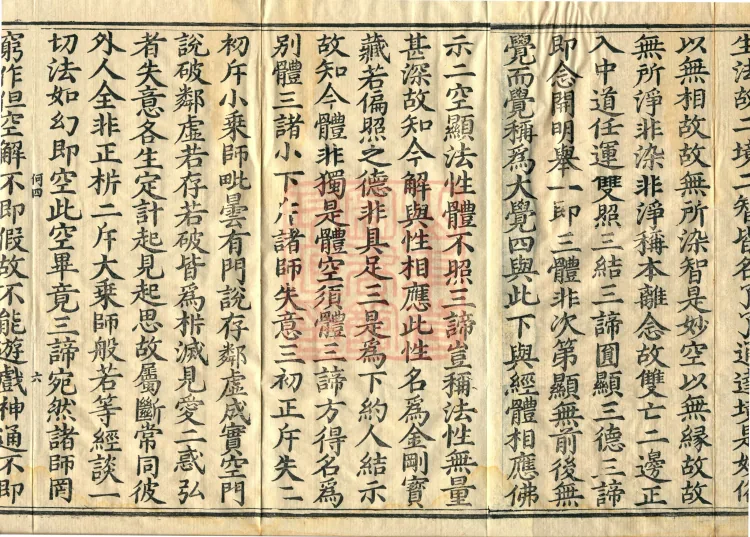 以無相故故無所染智是妙空以無縁故故
無所淨非染非淨稱本離念故雙亡二邊正
入中道任運雙照三結三諦圓顯三德三諦
即念開明舉一即三體非次第顯無前後無
覺而覺稱爲大覺四與此下與經體相應佛
示二空顯法性體不照三諦豈稱法性無量
甚深故知今解與性相應此性名爲金剛寶
藏若偏照之德非具足三是爲下約人結示
故知今體非獨是體空須體三諦方得名爲
別體三諸小下斥諸師失意三初正斥失二
初斥小乘師毗曇有門說存鄰虛成實空門
說破鄰虛若存若破皆爲析滅見愛二惑弘
者失意各生定計起見起思故屬斷常同彼
外人全非正析二斥大乘師般若等經談一
切法如幻即空此空畢竟三諦宛然諸師罔
何四
六
窮作但空解不即假故不能遊戲神通不即